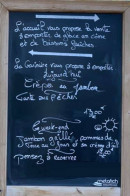 L'accueil vous propose la vente
à emporter de pizza en cône
et de Boissons fraîches
La Cuisine vous propose à emporter
aujourd'hui
Crêpe au Jambon
Tarte aux Pêches
Ce week-end
Jambon grillé, pommes de
terre au four et sa crème d'ail
pensez à réserver